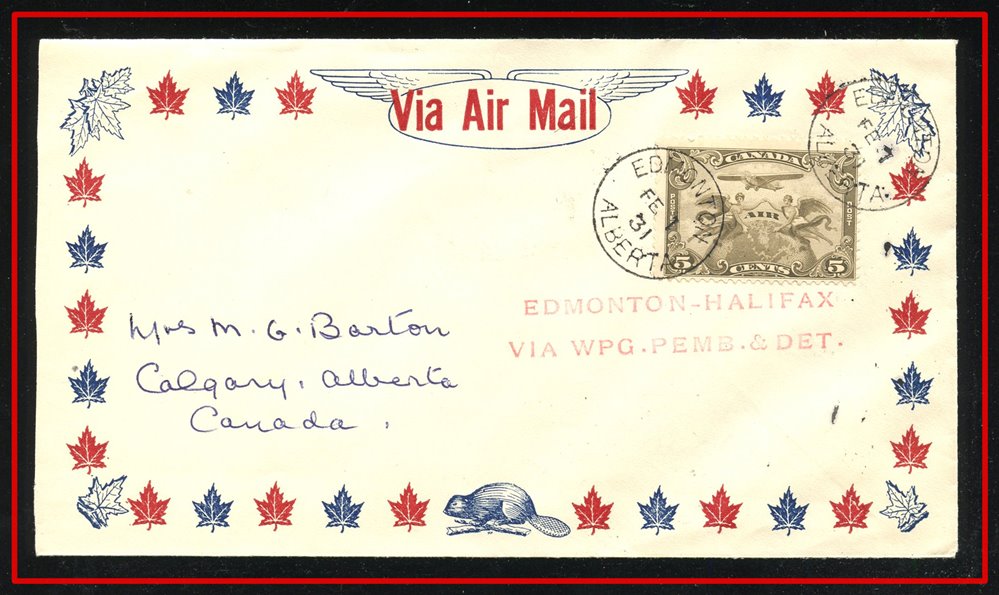 Via Air Mail
EDMONTON
FE 7
31
ALBERTA
EDMONTON
FE 7
31
ALBERTA
CANADA
POST
POST
AIR
5 CENTS 5
EDMONTON-HALIFAX
VIA WPG. PEMB. & DET.
Mrs M. G. Barton
Calgary, Alberta
Canada,